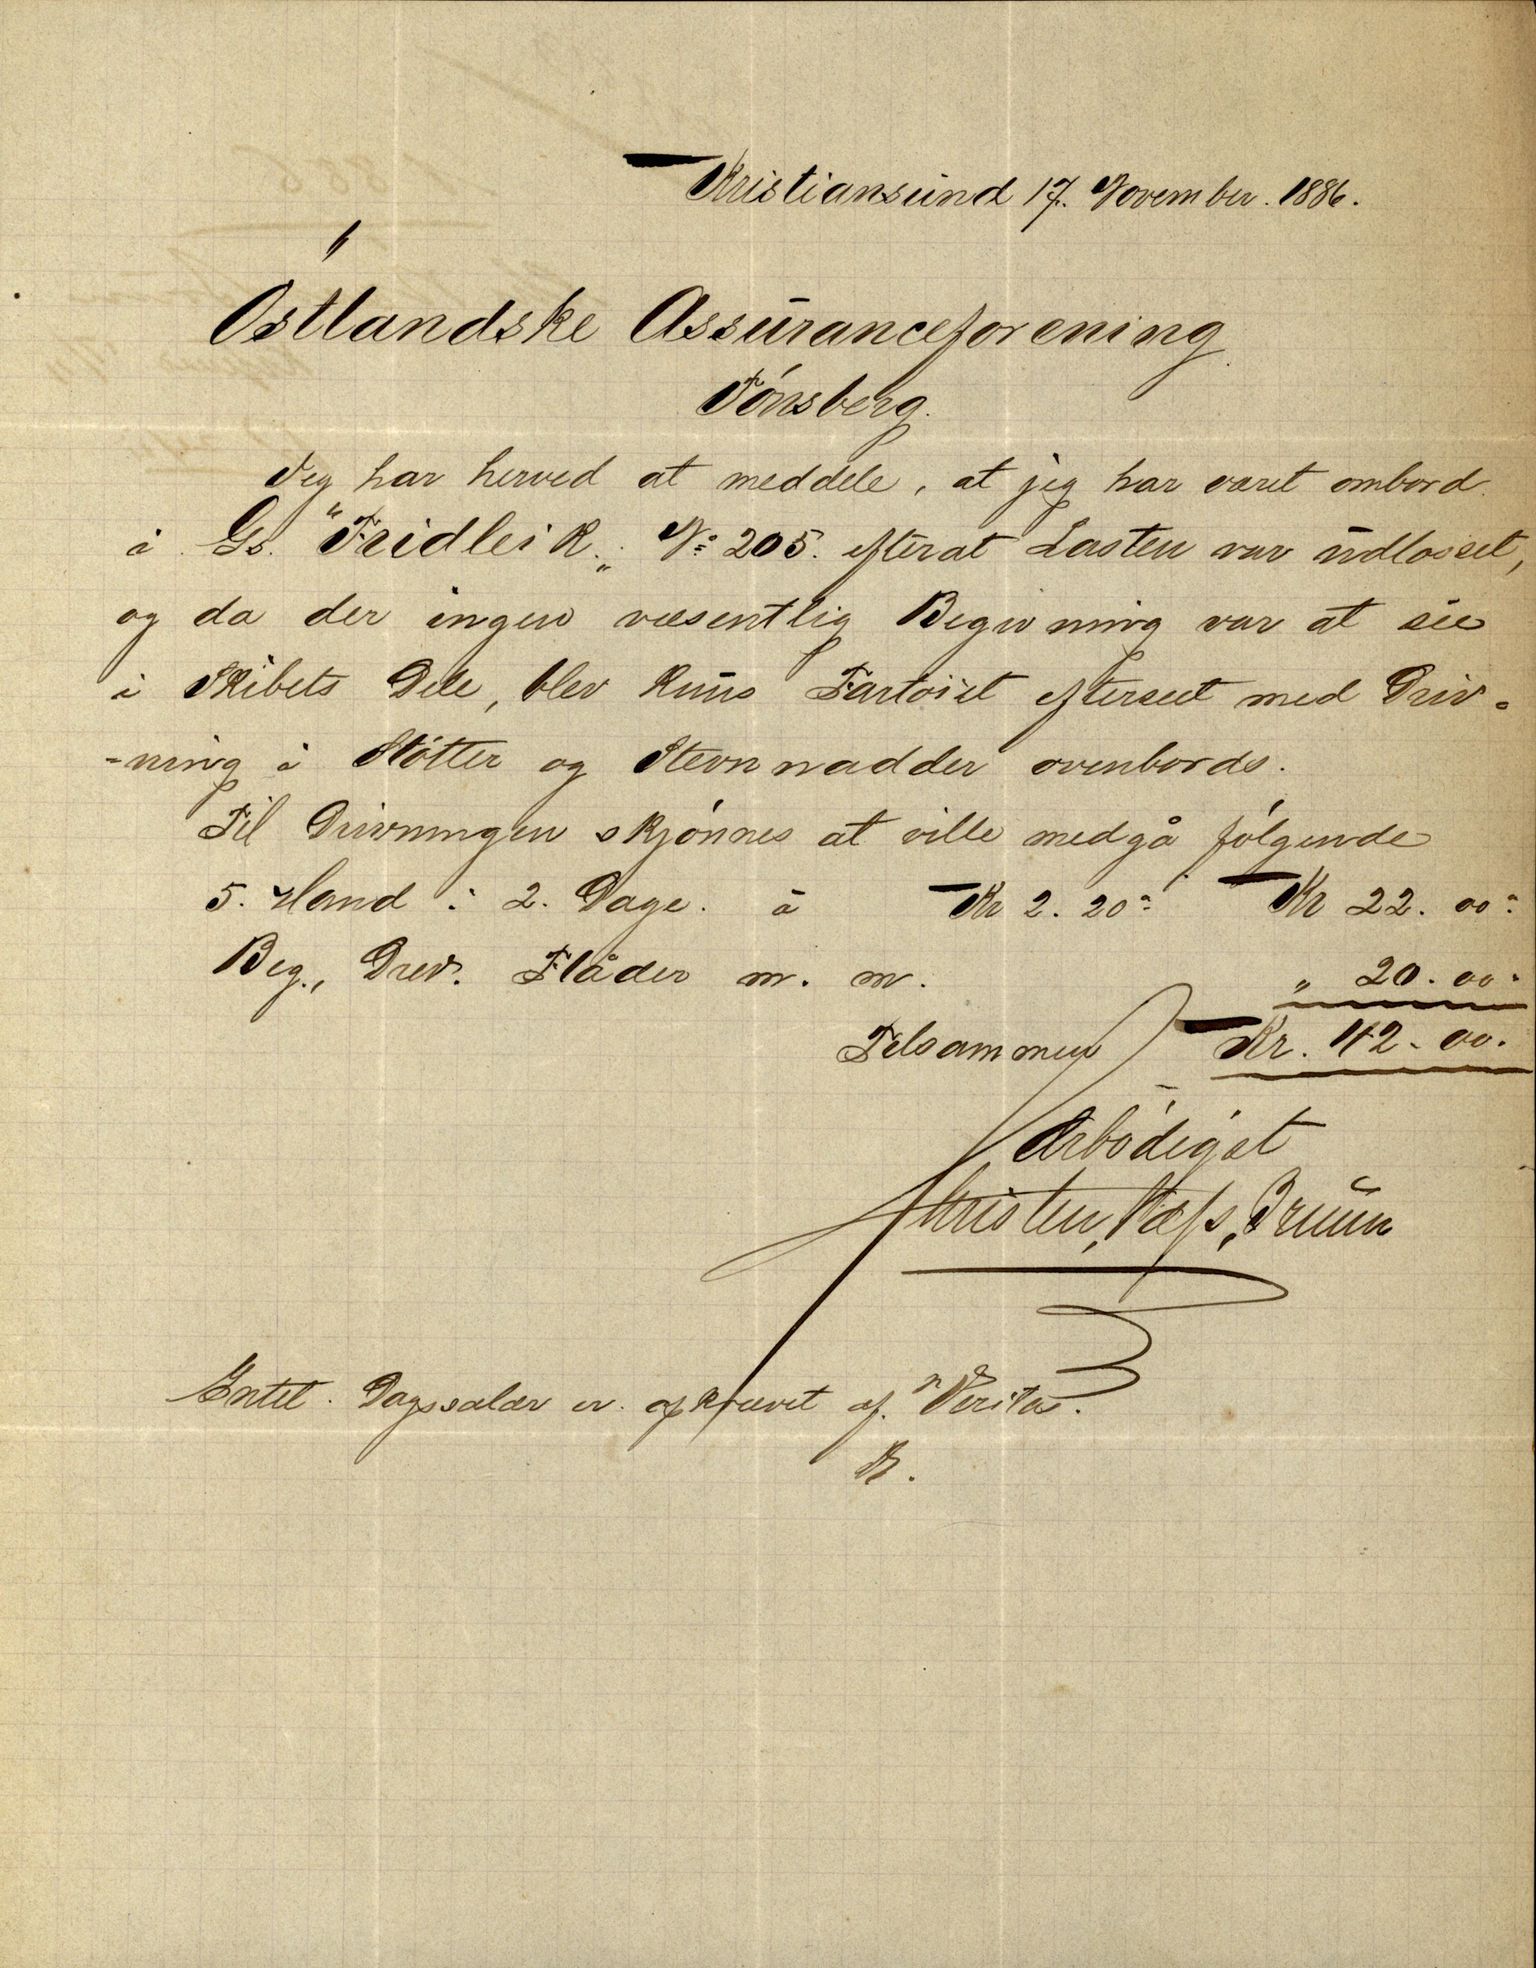 Kristiansund 17. November. 1886.
Östlandske Assuranceforening
Tönsberg.
Jeg har herved at meddele, at jeg har været ombord
i Gs. "Fridleik" No 205. efterat Lasten var udlosset,
og da der ingen væsentlig Begivning var at see
i Skibets Dele, blev kuns Fartöiet efterseet med Driv-
-ning i Stötter og Stevnnadder ovenbords.
Til Drivningen skjönnes at ville medgå fölgende
5. Mand i 2. Dage. à Kr 2. 20 Kr 22. 00
Beg., Drev. Flåder m. m. " 20. 00
Tilsammen Kr. 42. 00.
Ærbödigst
Christen, Næss, Bruun
Intet. Dagssalær er. afkrævet af. "Veritas".
B.